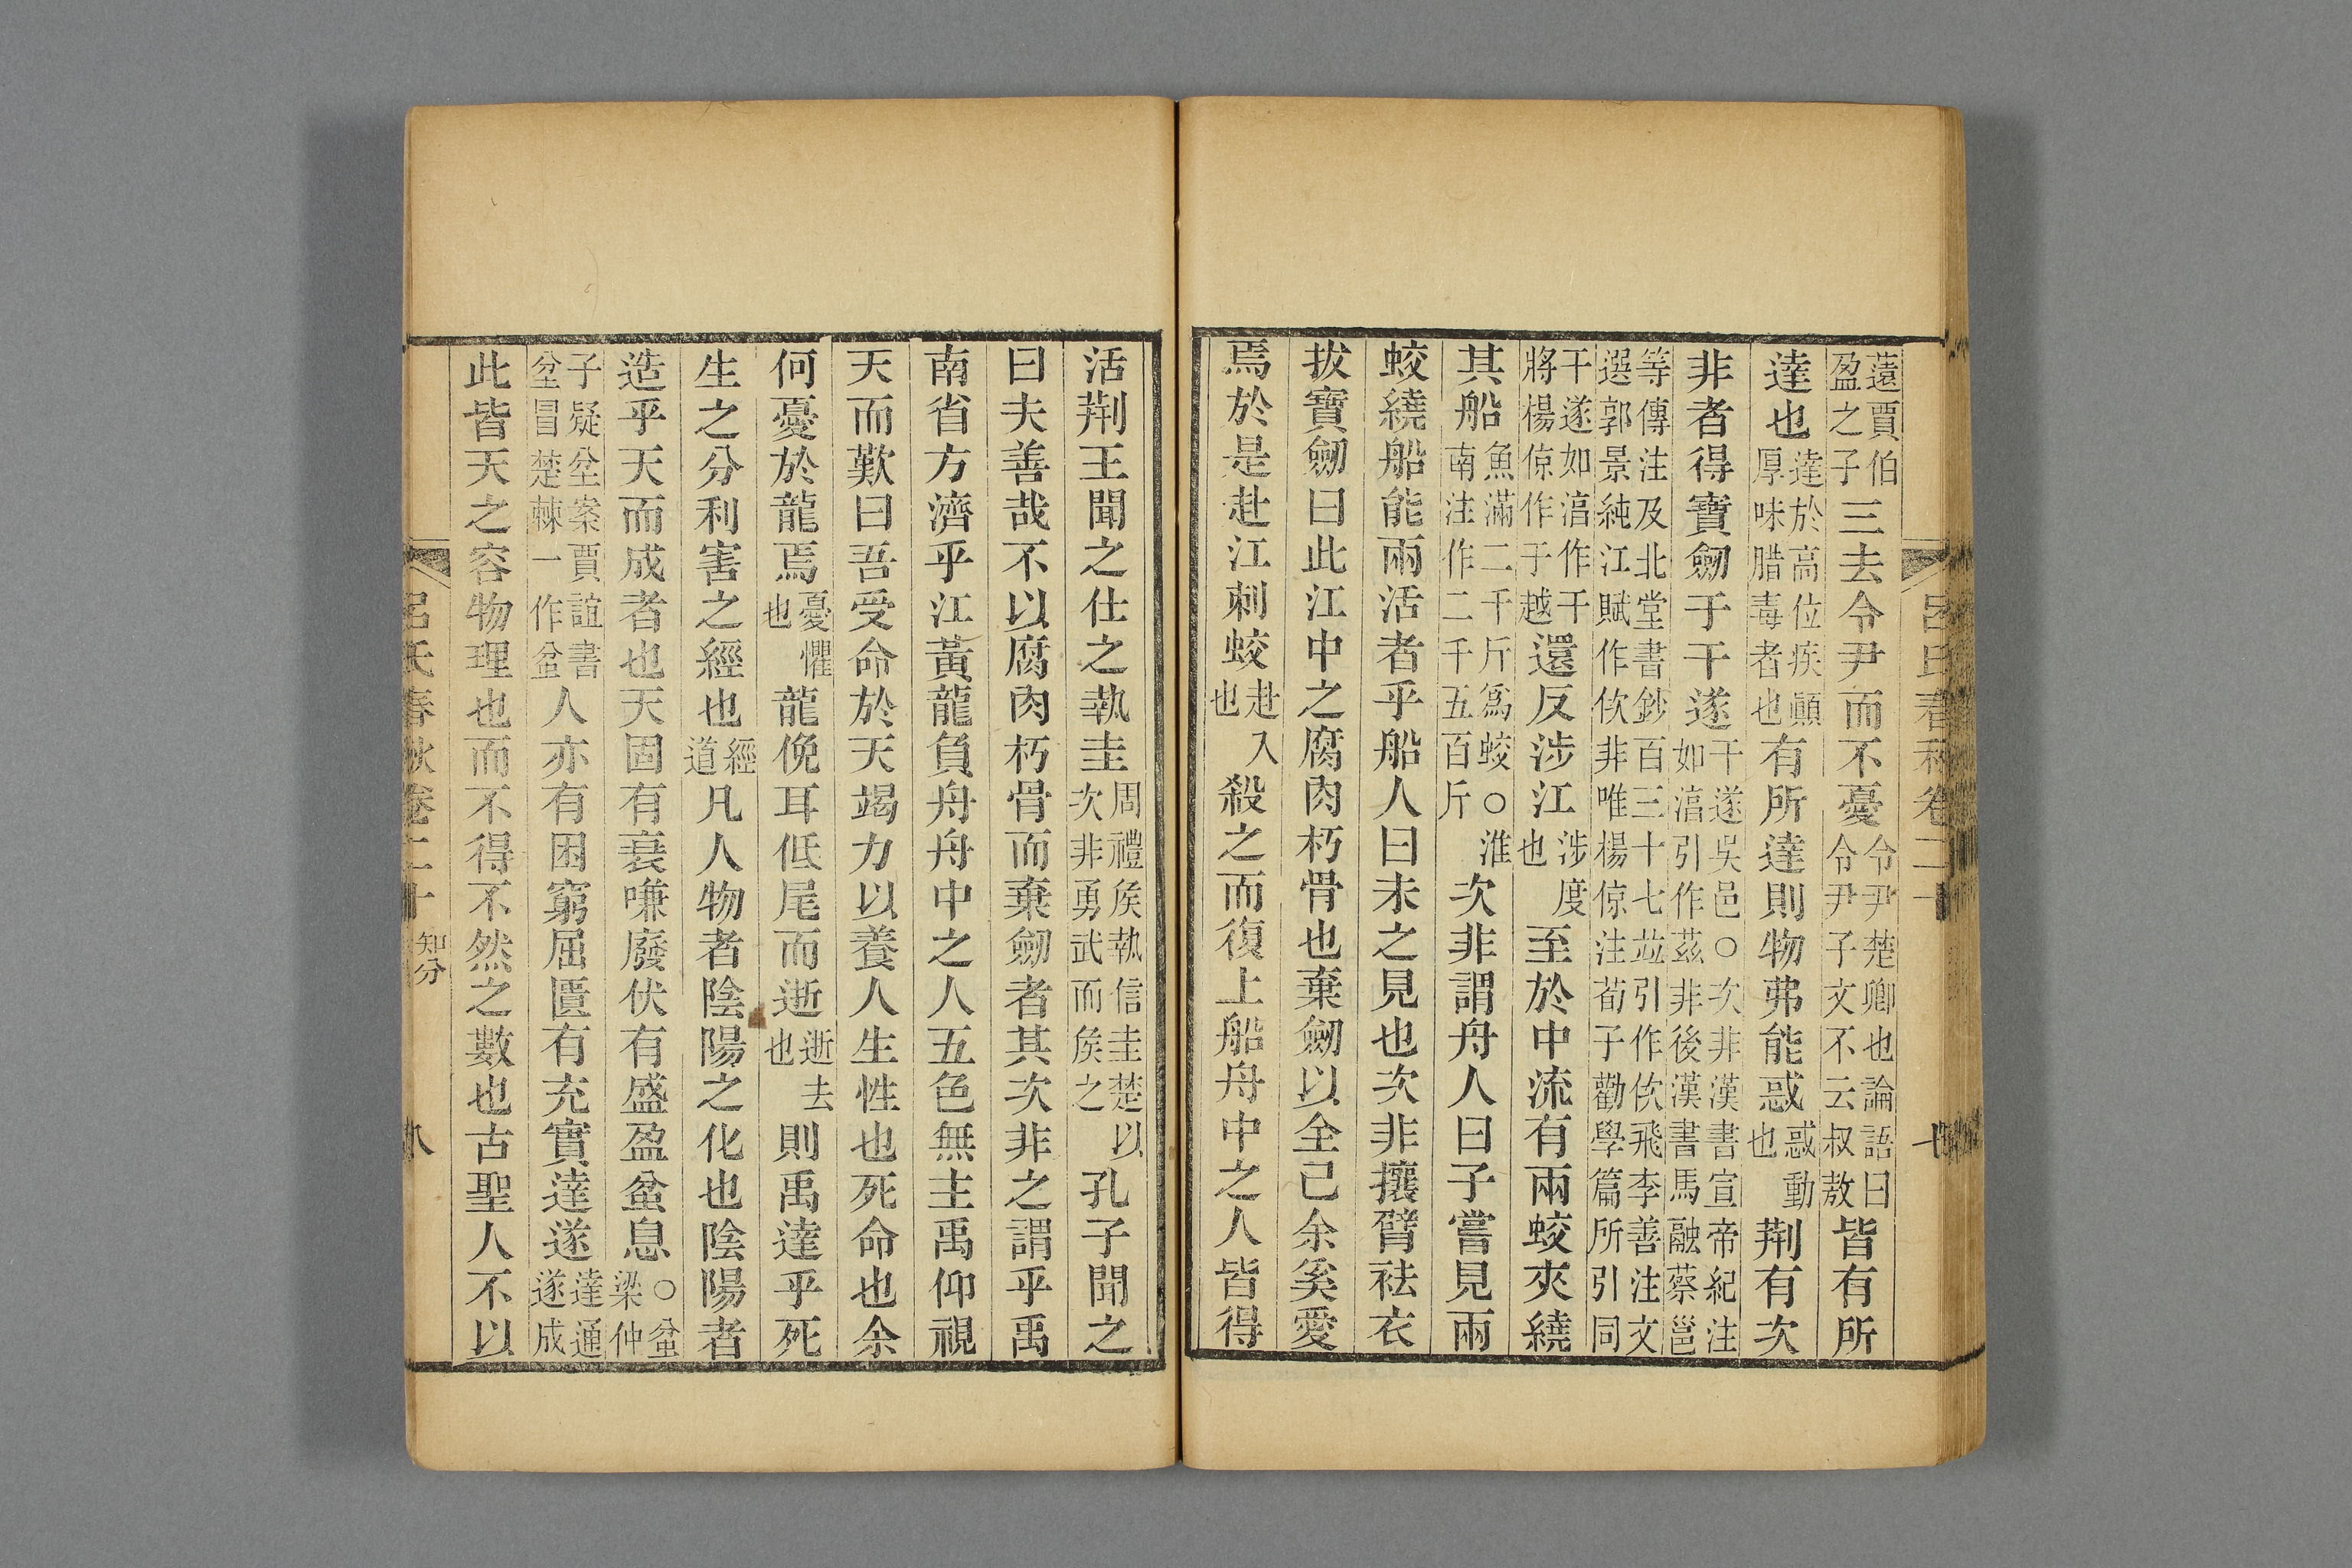 呂氏春秋卷二十
薳賈伯盈之子三去令尹而不憂令尹楚卿也論語曰令尹子文不云叔敖皆有所
達也達於高位疾顚厚味腊毒者也有所達則物弗能惑惑動也荆有次
非者得寶劒于干遂干遂吳邑○次非漢書宣帝紀注如湻引作茲非後漢書馬融蔡邕
等傳注及北堂書鈔百三十七竝引作佽飛李善注文選郭景純江賦作佽非唯楊倞注荀子勸學篇所引同
干遂如湻作干將楊倞作于越還反涉江涉度也至於中流有兩蛟夾繞
其船魚滿二千斤爲蛟○淮南注作二千五百斤次非謂舟人曰子嘗見兩
蛟繞船能兩活者乎船人曰未之見也次非攘臂袪衣
拔寶劒曰此江中之腐肉朽骨也棄劒以全己余奚愛
焉於是赴江刺蛟赴入也殺之而復上船舟中之人皆得
活荆王聞之仕之執圭周禮矦執信圭楚以次非勇武而矦之孔子聞之
曰夫善哉不以腐肉朽骨而棄劒者其次非之謂乎禹
南省方濟乎江黃龍負舟舟中之人五色無主禹仰視
天而歎曰吾受命於天竭力以養人生性也死命也余
何憂於龍焉憂懼也龍俛耳低尾而逝逝去也則禹達乎死
生之分利害之經也經道凡人物者陰陽之化也陰陽者
造乎天而成者也天固有衰嗛廢伏有盛盈坌息○坌梁仲
子疑坌案賈誼書坌冒楚棘一作坌人亦有困窮屈匱有充實達遂達通遂成
此皆天之容物理也而不得不然之數也古聖人不以
呂氏春秋卷二十 知分 八